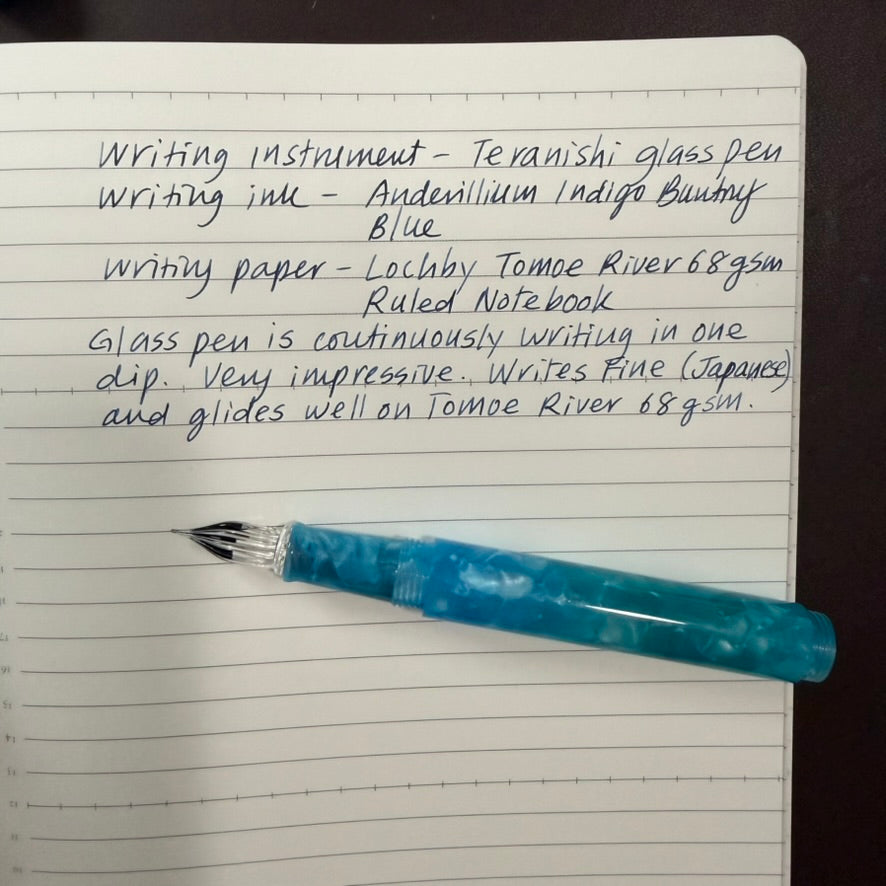 Writing instrument - Teranishi glass pen
Writing ink - Anderillium Indigo Bunting
Blue
Writing paper - Lochby Tomoe River 68gsm
Ruled Notebook
Glass pen is continuously writing in one
dip. Very impressive. Writes Fine (Japanese)
and glides well on Tomoe River 68gsm.